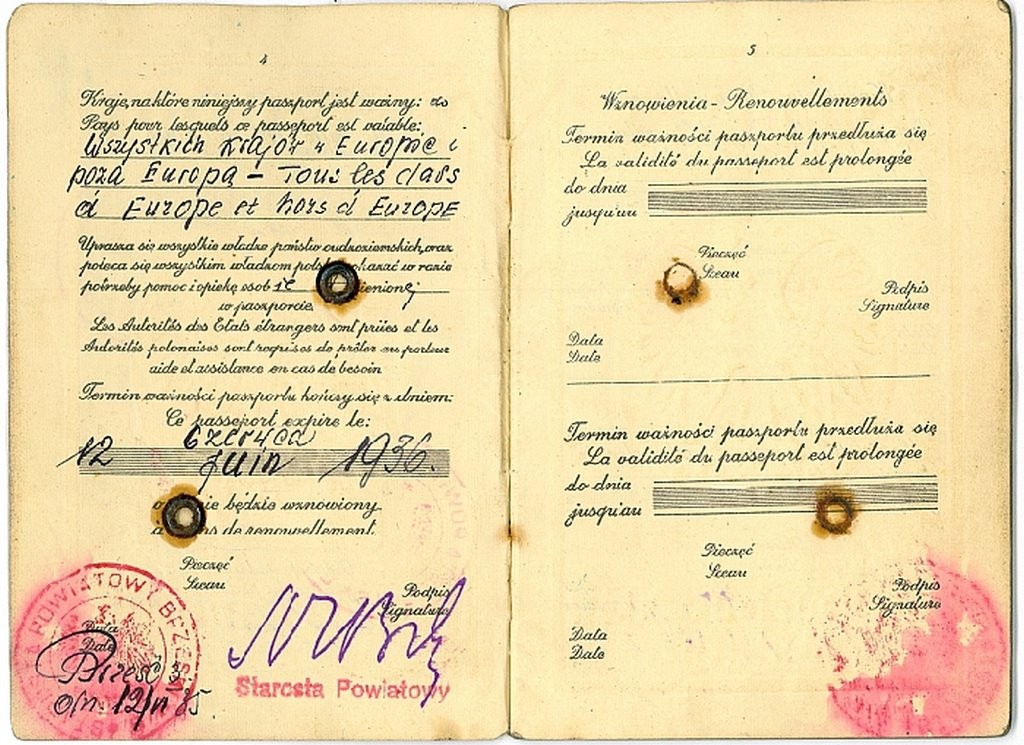 4
Kraje, na które niniejszy paszport jest ważny:
Pays pour lesquels ce passeport est valable:
Wszystkich krajów w Europie i
poza Europą – Tous les class
d Europe et hors d Europe
Uprasza się wszystkie władze państw cudzoziemskich, oraz
poleca się wszystkim władzom okazać w razie
potrzeby pomoc i opiekę osob ie ienionej
w paszporcie
Les Autorités des Etats étrangers sont priées et les
Autorités polonaises sont requises de prêter au porteur
aide et assistance en cas de besoin
Termin ważności paszportu kończy się z dniem:
Ce passeport expire le:
Czerwca
12 juin 1936.
nie będzie wznowiony
de renouvellement.
Pieczęć
Sceau
Podpis
Signature
POWIATOWY BRZES
Data
Date
Brześć
12/VI 35
Starosta Powiatowy
5
Wznowienia - Renouvellements
Termin ważności paszportu przedłuża się
La validité du passeport est prolongée
do dnia
jusqu'au
Pieczęć
Sceau
Podpis
Signature
Data
Date
Termin ważności paszportu przedłuża się
La validité du passeport est prolongée
do dnia
jusqu'au
Pieczęć
Sceau
Podpis
Signature
Data
Date